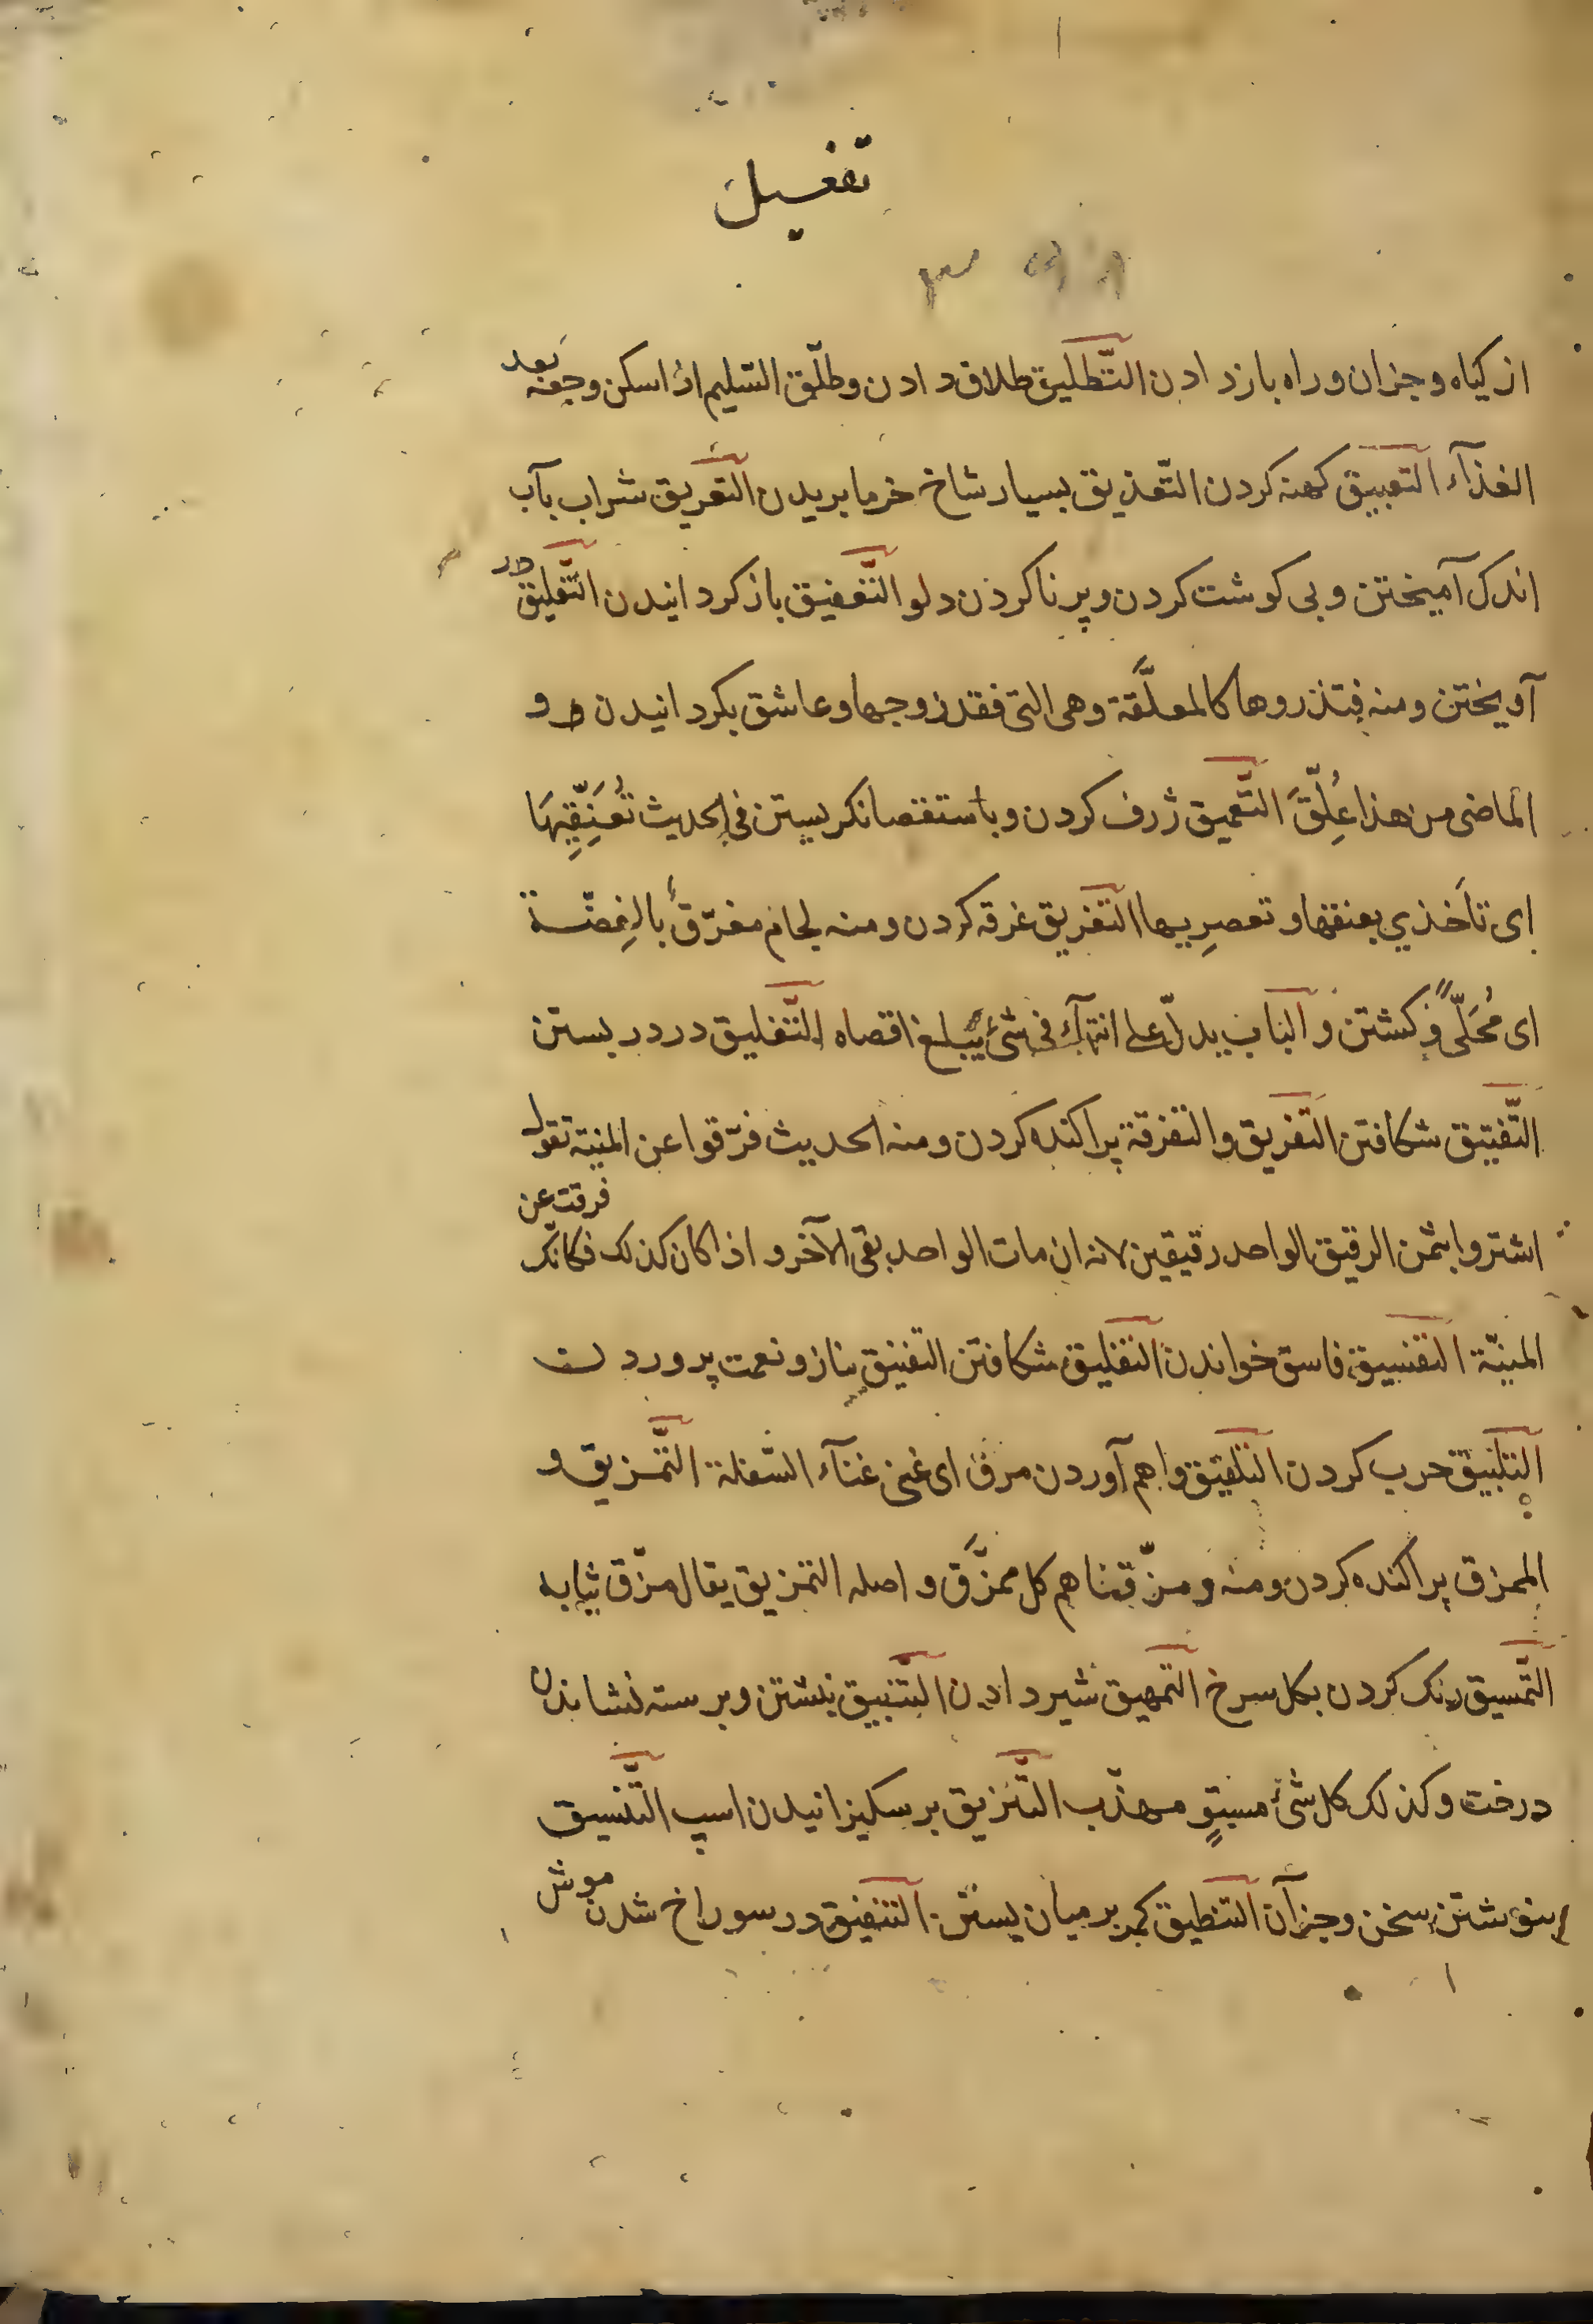 تفعیل
از کیاه وجزان وراه بازدادن التّطلیق طلاق دادن وطلّق السّلیم اذا سکن وجعه بعد
الغذآء التعبیق کهنه کردن التّعذیق بسیار شاخ خرما بریدن التعریق شراب بآب
اندک آمیختن وبی کوشت کردن وپر ناکردن دلو التّعفیق باز کردانیدن التّعلیق در
آویختن ومنه فتذروها کالمعلّقة وهی التی فقد زوجها وعاشق بکردانیدن و
الماضی من هذا عُلِّقَ التّعمیق ژرف کردن وباستقصا نکریستن فی الحدیث تُعَنِّقِیهَا
ای تأخذی بعنقها وتعصریها التغریق غرقه کردن ومنه لجام مغرّق بالفِضّة
ای مُحَلّیً وکشتن والباب یدلّ علی انتهآء فی شئ یبلغ اقصاه التّغلیق در دربستن
التّفتیق شکافتن التفریق والتفرقة پراکنده کردن ومنه الحدیث فرّقوا عن المنیة تقول
اشتروا بثمن الرقیق الواحد رقیقین لانه ان مات الواحد بقی الآخر واذا کان کذلک فکانّک فرقت عن
المنیّة التفسیق فاسق خواندن التفلیق شکافتن التفنیق بناز ونعمت پروردن
التلبیق چرب کردن التلفیق واهم آوردن مرق ای غنی غنآء السّفلة التّمزیق و
الممزق پراکنده کردن ومنه ومزّقناهم کل ممزَّق واصله التمزیق یقال مزّق ثیابه
التّمسیق رنک کردن بکل سرخ التمهیق شیر دادن التّنبیق نبشتن وبرسته نشاندن
درخت وکذلک کل شئ مستوٍ مهذّب التّنزیق برسکیزانیدن اسپ التّنسیق
بنوشتن سخن وجزآن التنطیق کمر بر میان بستن التنفیق در سوراخ شدن موش